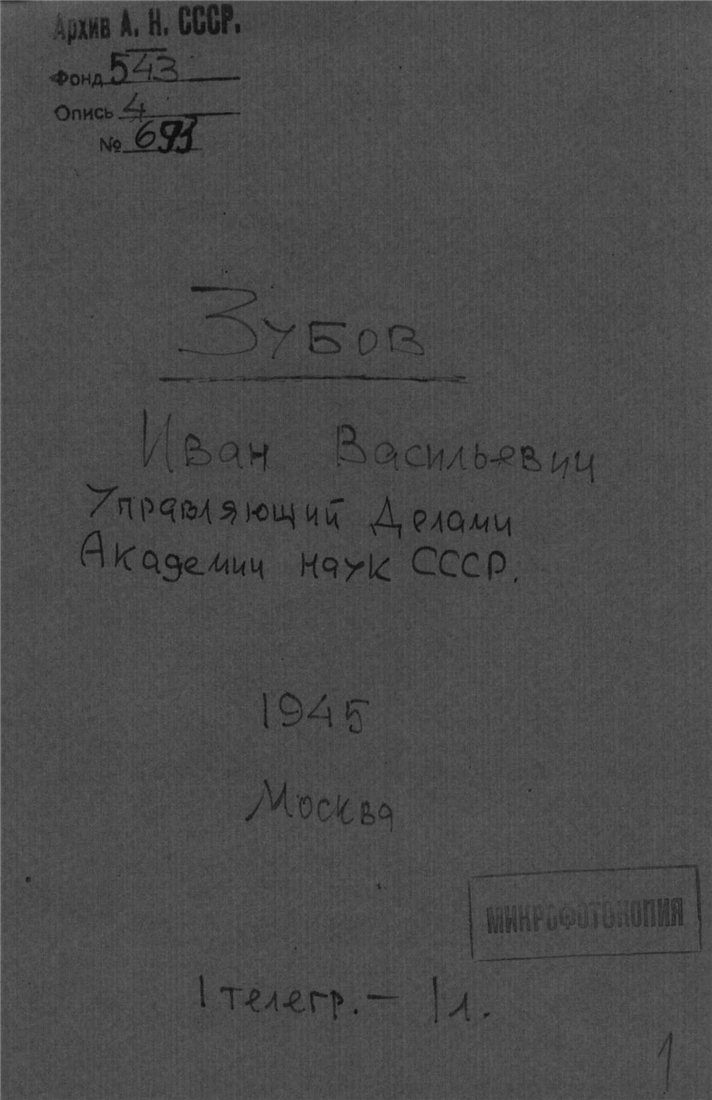 Архив А. Н. СССР.
Фонд 543
Опись 4
№ 693
Зубов
Иван Васильевич
Управляющий Делами
Академии наук СССР.
1945
Москва
МИКРОФОТОКОПИЯ
1 телегр. — 1 л.
1